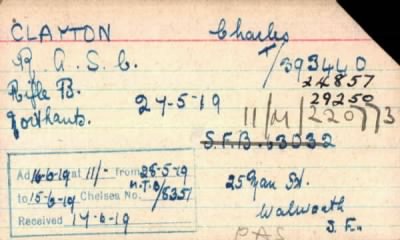 CLAYTON Charles
R. A. S. C. T/393440
Rifle B. 24857
Northants. 27-5-19 29250
11/M/220773
S.F.B. 63032
Ad 16-6-19 at 11/- from 28-5-19
M.T.O/
to 15-6-19 Chelsea No. 8351
Received 17-6-19
25 St.
Walworth
S. E.
PAS